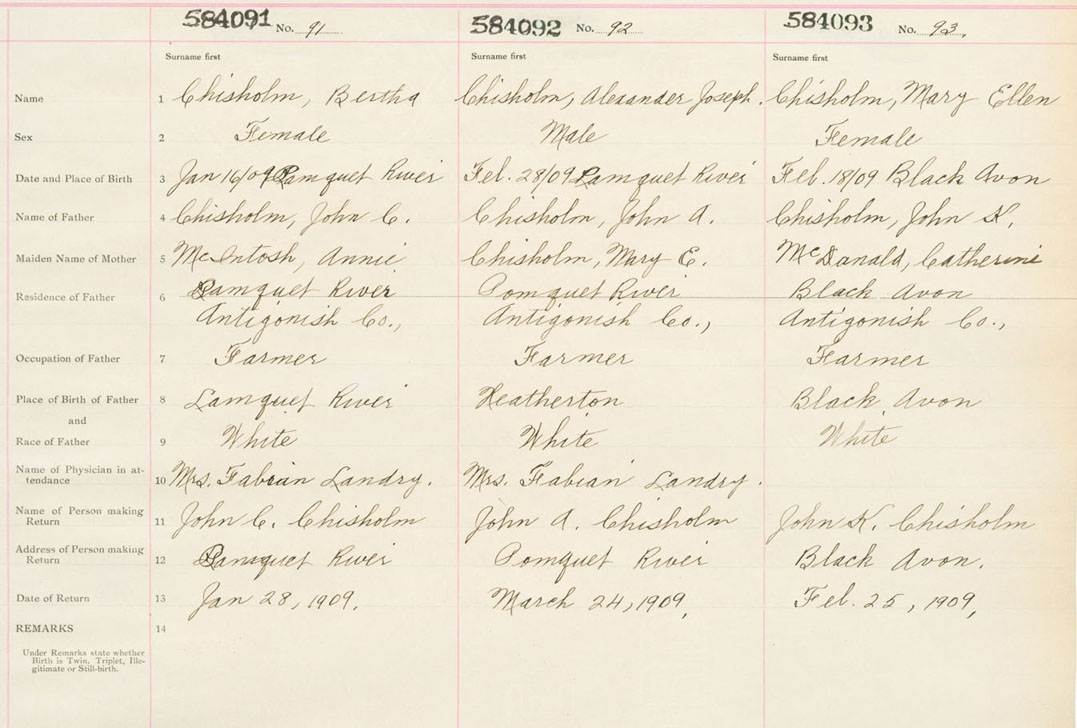 584091 No. 91 584092 No. 92 584093 No. 93.
Surname first Surname first Surname first
Name 1 Chisholm, Bertha Chisholm, Alexander Joseph. Chisholm, Mary Ellen
Sex 2 Female Male Female
Date and Place of Birth 3 Jan 16/09 Pamquet River Feb. 28/09 Pamquet River Feb. 18/09 Black Avon
Name of Father 4 Chisholm, John C. Chisholm, John A. Chisholm, John K.
Maiden Name of Mother 5 McIntosh, Annie Chisholm, Mary E. McDanald, Catherine
Residence of Father 6 Pamquet River Pomquet River Black Avon
Antigonish Co., Antigonish Co., Antigonish Co.,
Occupation of Father 7 Farmer Farmer Farmer
Place of Birth of Father 8 Lamquet River Heatherton Black Avon
and
Race of Father 9 White White White
Name of Physician in at-
tendance 10 Mrs. Fabian Landry. Mrs. Fabian Landry.
Name of Person making
Return 11 John C. Chisholm John A. Chisholm John K. Chisholm
Address of Person making
Return 12 Pamquet River Pomquet River Black Avon.
Date of Return 13 Jan 28, 1909. March 24, 1909, Feb. 25, 1909,
REMARKS 14
Under Remarks state whether
Birth is Twin, Triplet, Ille-
gitimate or Still-birth.